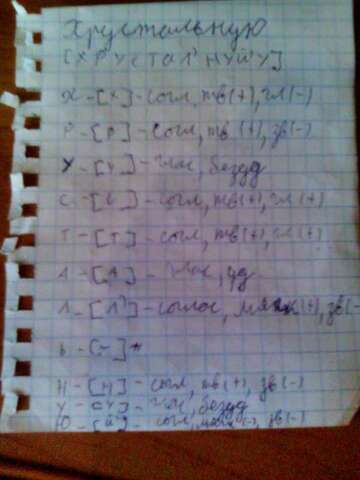 Хрустальную
[Х Р У С Т А Л' Н У Й' У]
Х - [Х] - согл, тв(+), гл(-)
Р - [Р] - согл, тв(+), зв(-)
У - [У] - глас, безуд
С - [С] - согл, тв(+), гл(+)
Т - [Т] - согл, тв(+), гл(+)
А - [А] - глас, уд
Л - [Л'] - соглас, мягк(+), зв(-
Ь - [-]
Н - [Н] - согл, тв(+), зв(-)
У - [У] - глас, безуд
Ю - [Й] - согл, мягк(-), зв(-)